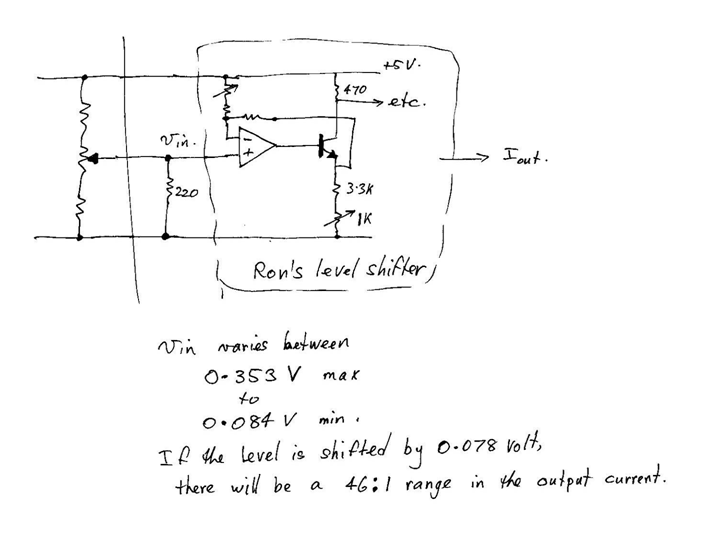 +5V.
470
etc.
Vin.
- 
+
Iout.
220
3.3K
1K
Ron's level shifter
Vin varies between
0.353 V max
to
0.084 V min.
If the level is shifted by 0.078 volt,
there will be a 46:1 range in the output current.